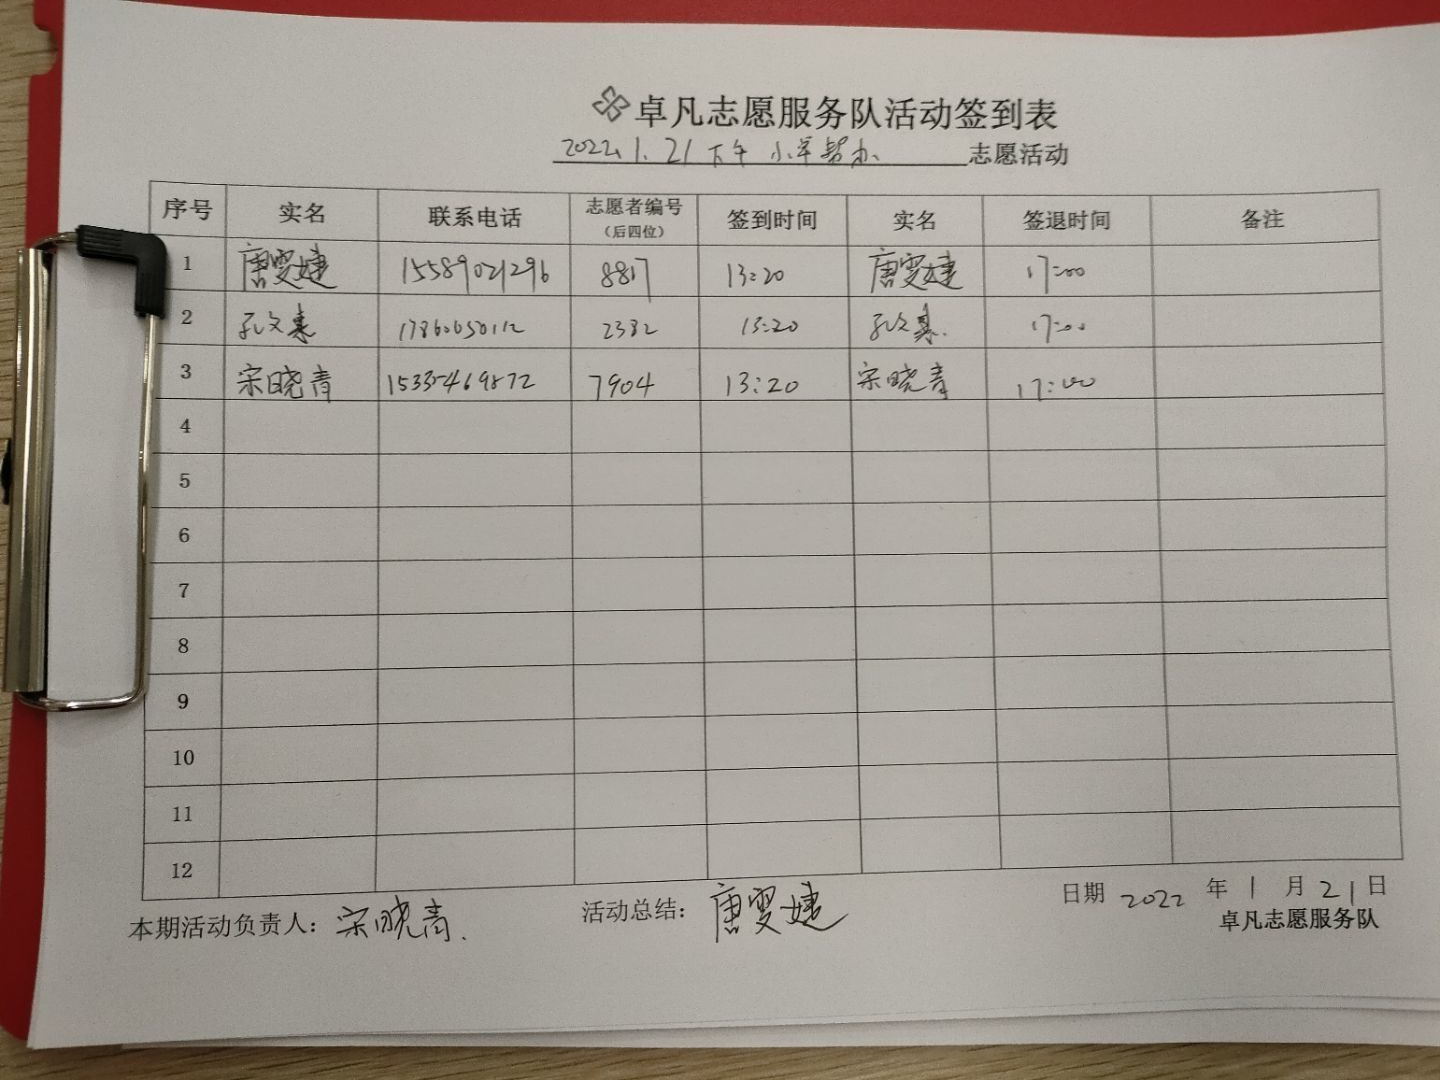 卓凡志愿服务队活动签到表
2022.1.21下午 小草帮办 志愿活动
序号 实名 联系电话 志愿者编号（后四位） 签到时间 实名 签退时间 备注
1 唐雯婕 15589021296 8817 13:20 唐雯婕 17:00
2 孔文 17860650112 2382 13:20 孔文 17:00
3 宋晓青 15335469872 7904 13:20 宋晓青 17:00
4
5
6
7
8
9
10
11
12
本期活动负责人：宋晓青. 活动总结：唐雯婕 日期 2022 年 1 月 21 日
卓凡志愿服务队